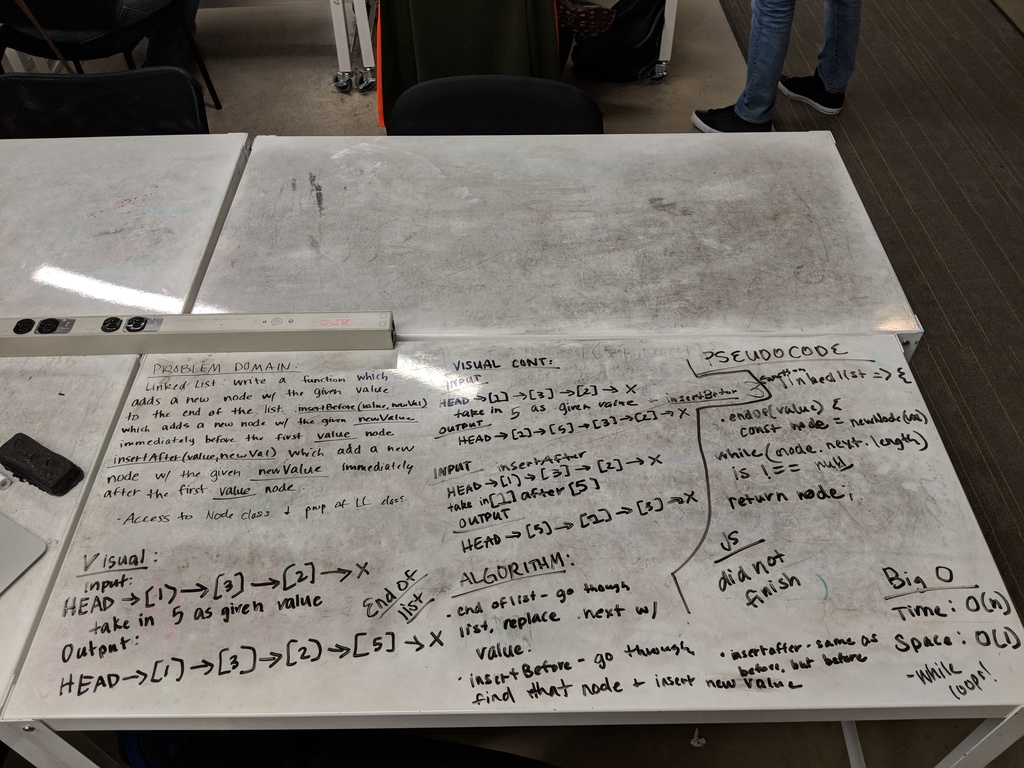 PROBLEM DOMAIN:
Linked List: write a function which
adds a new node w/ the given value
to the end of the list. insertBefore(value, newVal)
which adds a new node w/ the given newValue
immediately before the first value node
insertAfter(value, newVal) which add a new
node w/ the given newValue immediately
after the first value node.
- Access to Node class + prop of LL class.
Visual:
input:
HEAD → [1] → [3] → [2] → X
take in 5 as given value
Output:
HEAD → [1] → [3] → [2] → [5] → X
End of
list
VISUAL CONT:
INPUT
HEAD → [1] → [3] → [2] → X
take in 5 as given value - insertBefor
OUTPUT
HEAD → [1] → [5] → [3] → [2] → X
INPUT insertAfter
HEAD → [1] → [3] → [2] → X
take in [1] after [5]
OUTPUT
HEAD → [5] → [1] → [3] → X
ALGORITHM:
• end of list - go though
list, replace .next w/
value.
• insertBefore - go through,
find that node + insert new value
• insertafter - same as
before, but before
PSEUDOCODE
linked list => {
• endof(value) {
const node = newNode(val)
while(node.next.length)
is !== null
return node;
JS
did not
finish
Big O
Time: O(n)
Space: O(1)
- While
loops!